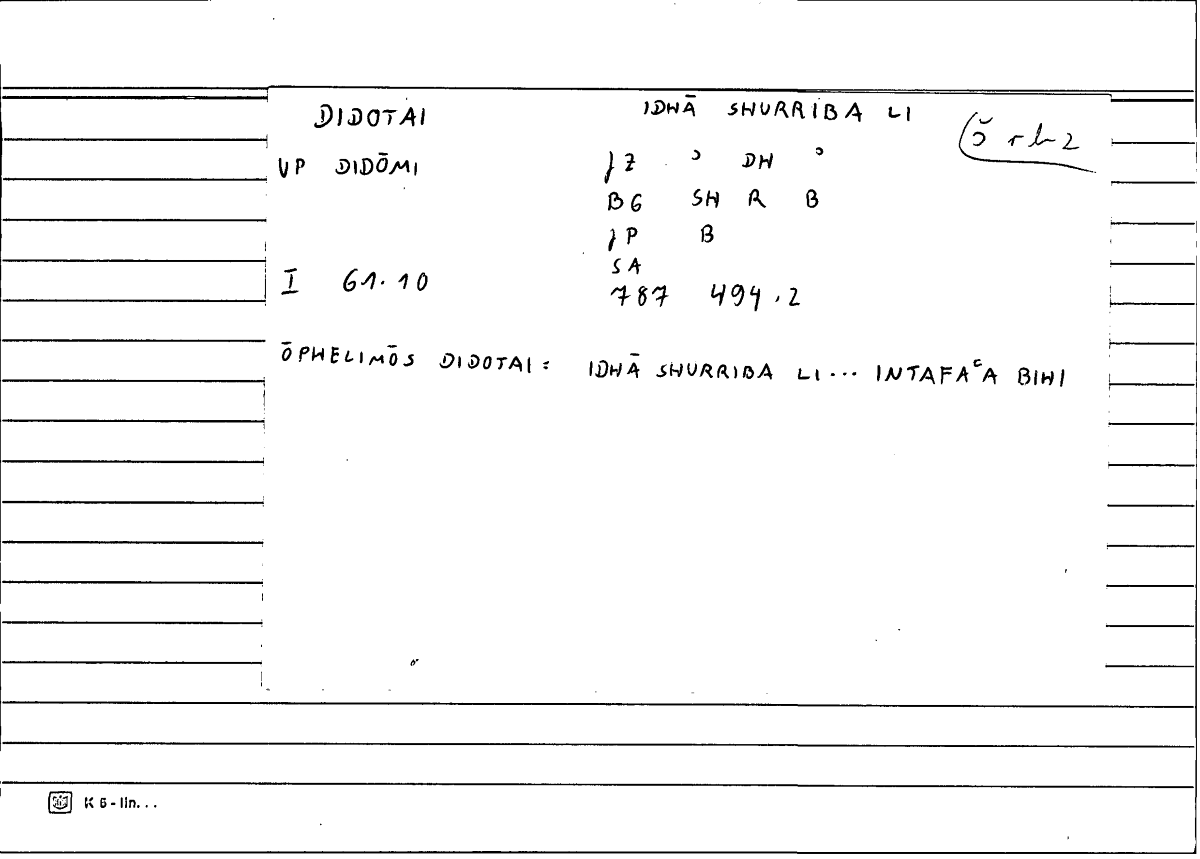 DIDOTAI IDHĀ SHURRIBA LI
VP DIDŌMI JZ ʾ DH ʾ
BG SH R B
JP B
SA
I 61.10 787 494.2
ŌPHELIMŌS DIDOTAI = IDHĀ SHURRIBA LI... INTAFAʿA BIHI
K 6 - lin...